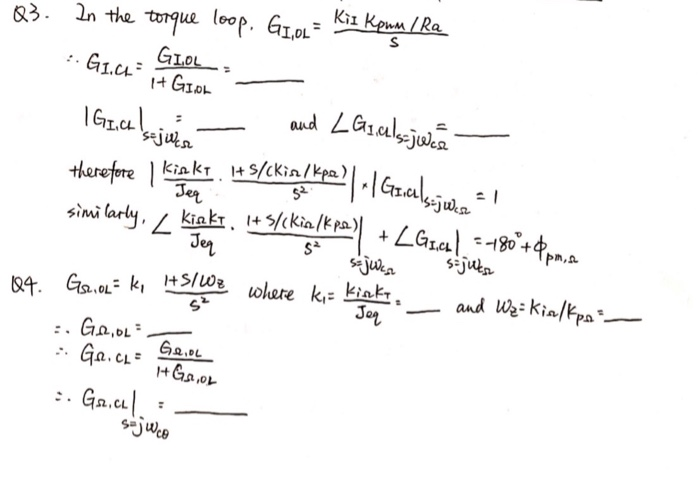 Q3. In the torque loop. G_{I,OL} = K_{iI} K_{PWM} / R_a / S
∴ G_{I,CL} = G_{I,OL} / 1 + G_{I,OL} = ____
|G_{I,CL}|_{s=jω_{cΩ}} = ____ and ∠G_{I,CL}|_{s=jω_{cΩ}} = ____
therefore | K_{iΩ} K_T / J_{eq} · 1 + S/(K_{iΩ}/K_{pΩ}) / S² | * |G_{I,CL}|_{s=jω_{cΩ}} = 1
similarly, ∠ K_{iΩ} K_T / J_{eq} · 1 + S/(K_{iΩ}/K_{pΩ}) / S² |_{s=jω_{cΩ}} + ∠G_{I,CL}|_{s=jω_{cΩ}} = -180° + ϕ_{pm,Ω}
Q4. G_{Ω,OL} = k_1 1 + S/ω_z / S² where k_1 = K_{iΩ} K_T / J_{eq} = __ and ω_z = K_{iΩ}/K_{pΩ} = __
∴ G_{Ω,OL} = ____
∴ G_{Ω,CL} = G_{Ω,OL} / 1 + G_{Ω,OL}
∴ G_{Ω,CL}|_{s=jω_{cθ}} = ____